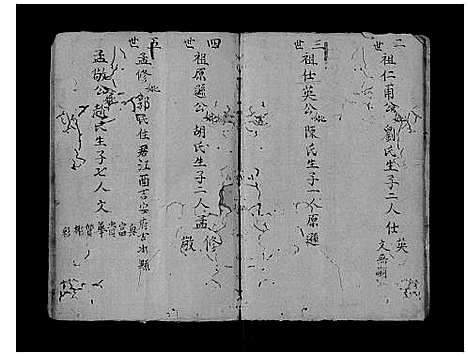 二世
祖仁甫公妣劉氏生子二人仕英
文無嗣
三世
祖仕英公妣陳氏生子一人原遜
四世
祖原遜公妣胡氏生子二人孟修
敬
五世
孟修妣郭氏住居江西吉安府吉水縣
孟敬公妣趙氏生子七人文